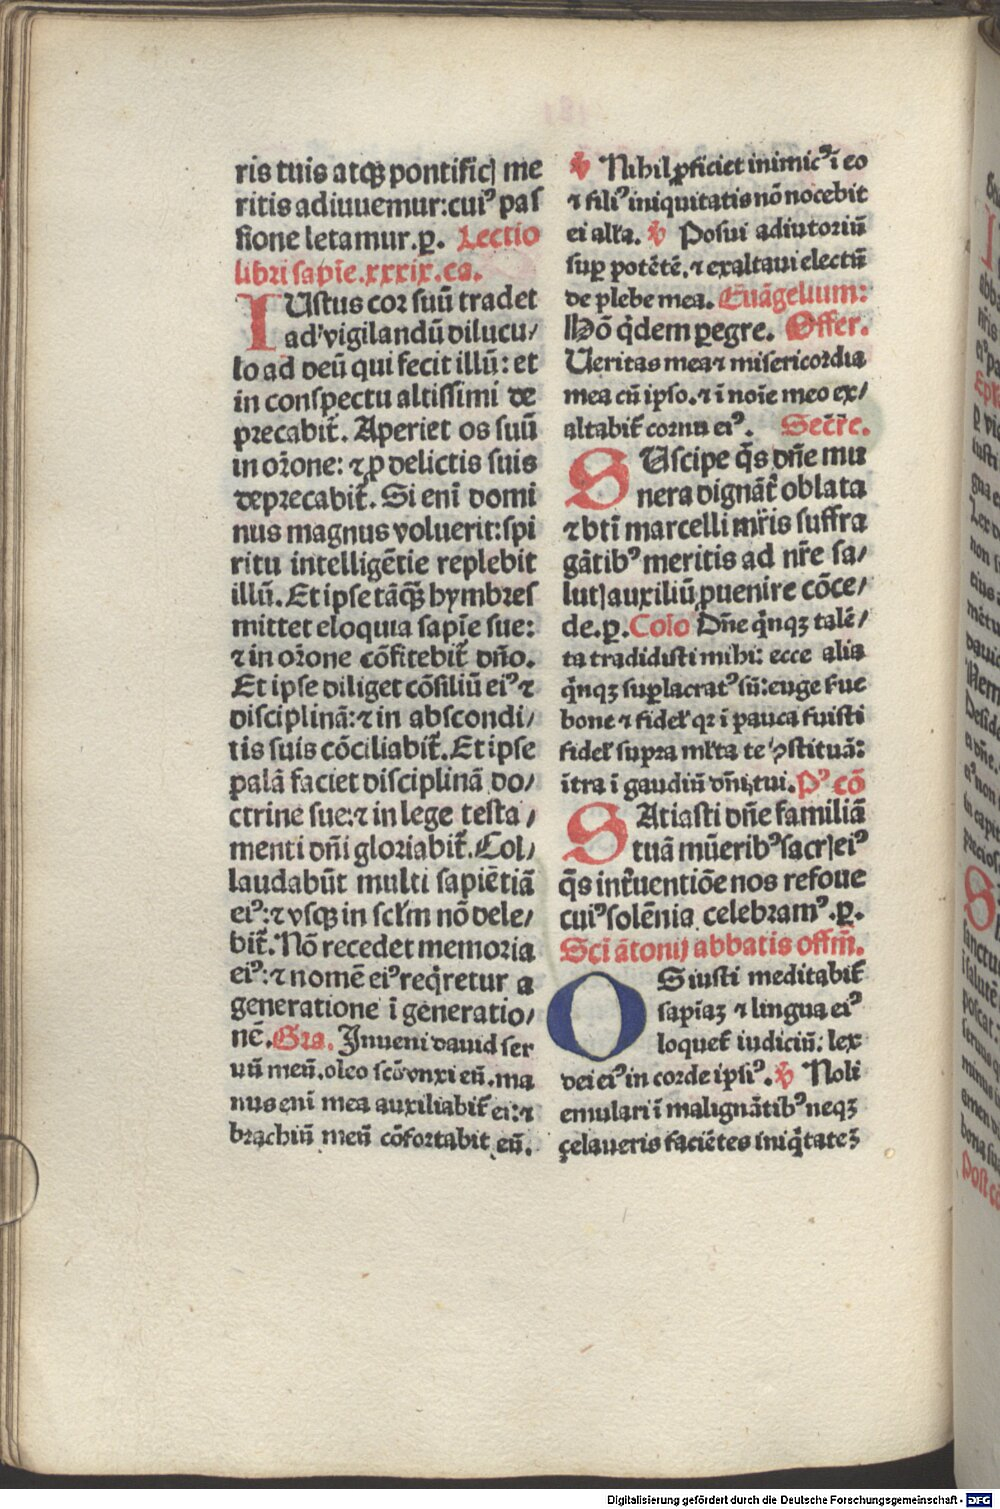 ris tuis atqꝫ pontificꝭ me
ritis adiuuemur:cuiꝰ paſ
ſione letamur.ꝑ. Lectio
libri ſapīe.xxxix.ca.
IUſtus cor ſuū tradet
ad vigilandū dilucu/
lo ad deū qui fecit illū: et
in conſpectu altiſſimi de
precabit̄. Aperiet os ſuū
in oꝛōne: ⁊ ꝓ delictis ſuis
deprecabit̄. Si eni domi
nus magnus voluerit:ſpi
ritu intelligētie replebit
illū. Et ipſe tāqꝫ hymbreſ
mittet eloquia ſapīe ſue:
⁊ in oꝛōne cōfitebit̄ dño.
Et ipſe diliget cōſiliū eiꝰ ⁊
diſciplinā:⁊ in abſcondi/
tis ſuis cōciliabit̄. Et ipſe
palā faciet diſciplinā do/
ctrine ſue:⁊ in lege teſta/
menti dñi gloriabit̄. Col/
laudabūt multi ſapiētiā
eiꝰ:⁊ vſqꝫ in ſcl̄m nō dele/
bit̄. Nō recedet memoria
eiꝰ:⁊ nomē eiꝰ reqͥretur a
generatione ī generatio/
nē. Gra. Inueni dauid ſer
uū meū.oleo ſcō vnxi eū.ma
nus eni mea auxiliabit̄ ei:⁊
brachiū meū cōfortabit eū.
℣ Nihil ꝓficiet inimicꝰ ī eo
⁊ filiꝰ iniquitatis nō nocebit
ei alla. ℣ Poſui adiutoriū
ſuꝑ potētē.⁊ exaltaui electū
de plebe mea. Euāgelium:
Hō qͥdem ꝑegre. Offer.
Ueritas mea ⁊ miſericordia
mea cū ipſo.⁊ ī noīe meo ex/
altabit̄ cornu eiꝰ. Secr̄e.
SUſcipe q̄s dn̄e mu
nera dignāt̄ oblata
⁊ bt̄i marcelli mr̄is ſuffra
gātibꝰ meritis ad nr̄e ſa/
lutꝭ auxiliū ꝓuenire cōce/
de.ꝑ. Coīo Dn̄e qͥnqꝫ talē/
ta tradidiſti mihi: ecce alia
qͥnqꝫ ſuꝑlacratꝰ ſū:euge ſue
bone ⁊ fidel̄ qꝛ ī pauca fuiſti
fidel̄ ſupra ml̄ta te ꝯſtituā:
ītra ī gaudiū dn̄i tui. Pꝰ cō
SAtiaſti dn̄e familiā
tuā mūeribꝰ ſacrꝭ eiꝰ
q̄s int̄uentiōe nos refoue
cuiꝰ ſolēnia celebramꝰ.ꝑ.
Sc̄i ātonij abbatis offm̄.
OS iuſti meditabit̄
ſapīaꝫ ⁊ lingua eiꝰ
loquet̄ iudiciū: lex
dei eiꝰ in corde ipſiꝰ. ℣ Noli
emulari ī malignātibꝰ neqꝫ
çelaueris faciētes iniqͥtateꝫ
Digitalisierung gefördert durch die Deutsche Forschungsgemeinschaft - DFG